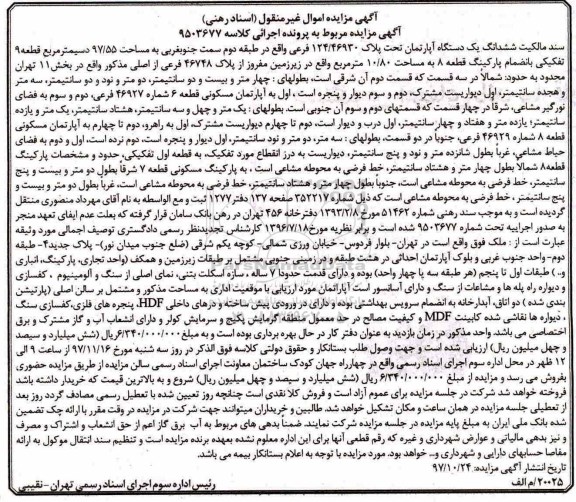 آگهی مزایده اموال غیرمنقول (اسناد رهنی)
آگهی مزایده مربوط به پرونده اجرائی کلاسه ۹۵۰۳۶۷۷
سند مالکیت ششدانگ یک دستگاه آپارتمان تحت پلاک ۱۲۴/۴۶۹۳۰ فرعی واقع در طبقه دوم سمت جنوبغربی به مساحت ۹۷/۵۵ دسیمترمربع قطعه۹
تفکیکی بانضمام پارکینگ قطعه ۸ به مساحت ۱۰/۸۰ مترمربع واقع در زیرزمین مفروز از پلاک ۴۶۷۴۸ فرعی از اصلی مذکور واقع در بخش۱۱ تهران
محدود به حدود: شمالاً در سه قسمت که قسمت دوم آن شرقی است، بطولهای: چهار متر و بیست و دو سانتیمتر، دو متر و نود و دو سانتیمتر، سه متر
و هجده سانتیمتر، اول دیواریست مشترک، دوم و سوم دیوار و پنجره است، اول به آپارتمان مسکونی قطعه ۶ شماره ۴۶۹۲۷ فرعی، دوم و سوم به فضای
نورگیر مشاعی، شرقاً در چهار قسمت که قسمتهای دوم و سوم آن جنوبی است، بطولهای: یک متر و چهل و سه سانتیمتر، هشتاد سانتیمتر، یک متر و یازده
سانتیمتر؛ یازده متر و هفتاد و چهار سانتیمتر، اول درب و دیوار است، دوم تا چهارم دیواریست مشترک، اول به راهرو، دوم تا چهارم به آپارتمان مسکونی
قطعه ۸ شماره ۴۶۹۲۹ فرعی، جنوباً در دو قسمت، بطولهای: سه متر، دو متر و نود سانتیمتر، اول دیوار و پنجره است، دوم نرده است، اول و دوم به فضای
حیاط مشاعی، غرباً بطول شانزده متر و نود و پنج سانتیمتر، دیواریست به درز انقطاع مورد تفکیک، به قطعه اول تفکیکی، حدود و مشخصات پارکینگ
قطعه۸ شمالاً بطول چهار متر و هشتاد سانتیمتر، خط فرضی به محوطه مشاعی است، به پارکینگ مسکونی قطعه ۷ شرقاً بطول دو متر و بیست و پنج
سانتیمتر، خط فرضی به محوطه مشاعی است، جنوباً بطول چهار متر و هشتاد سانتیمتر، خط فرضی به محوطه مشاعی است، غرباً بطول دو متر و بیست و
پنج سانتیمتر، خط فرضی به محوطه مشاعی است که ذیل شماره ۳۵۲۲۱۷ صفحه ۱۳۷ دفتر ۱۲۷۷ ثبت و مع الواسطه به نام آقای مهرداد منصوری منتقل
گردیده است و به موجب سند رهنی شماره ۵۱۴۶۲ مورخ ۱۳۹۳/۲/۸ دفترخانه ۴۵۶ تهران در رهن بانک سامان قرار گرفته که بعلت عدم ایفای تعهد منجر
به صدور اجراییه تحت شماره ۹۵۰۳۶۷۷ شده است و برابر نظریه مورخ ۱۳۹۶/۷/۱۸ کارشناس تجدیدنظر رسمی دادگستری توصیف اجمالی مورد وثیقه
عبارت است از: ملک فوق واقع است در تهران- بلوار فردوس- خیابان ورزی شمالی- کوچه یکم شرقی (ضلع جنوب میدان نور)- پلاک جدید۴- طبقه
دوم- واحد جنوب غربی و بلوک آپارتمان احداثی در هشت طبقه و در زمینی جنوبی مشتمل بر طبقات زیرزمین و همکف (واحد تجاری، پارکینگ، انباری
و..) طبقات اول تا پنجم (هر طبقه سه یا چهار واحد) بوده و دارای قدمت حدوداً ۷ ساله، سازه اسکلت بتنی، نمای اصلی از سنگ و آلومینیوم، کفسازی
و دیواره راه پله ها و مشاعات از سنگ و دارای آسانسور است آپارتمان مورد ارزیابی با موقعیت اداری به مساحت مذکور و مشتمل بر سالن اصلی (پارتیشن
بندی شده) دو اتاق، آبدارخانه به انضمام سرویس بهداشتی بوده و دارای در ورودی پیش ساخته و درهای داخلی HDF، پنجره های فلزی، کفسازی سنگ
، دیواره ها نقاشی شده کابینت MDF و کیفیت مصالح در حد معمول منطقه گرمایش پکیج و سرمایش کولر و دارای انشعاب آب و گاز مشترک و برق
اختصاصی می باشد. واحد مذکور در زمان بازدید به عنوان دفتر کار در حال بهره برداری بوده است و به مبلغ ۶/۳۴۰/۰۰۰/۰۰۰ریال (شش میلیارد و سیصد
و چهل میلیون ریال) ارزیابی شده است و جهت وصول طلب بستانکار و حقوق دولتی کلاسه فوق الذکر در روز سه شنبه مورخ ۹۷/۱۱/۱۶ از ساعت ۹ الی
۱۲ ظهر در محل اداره سوم اجرای اسناد رسمی واقع در چهارراه جهان کودک ساختمان معاونت اجرای اسناد رسمی سالن مزایده از طریق مزایده حضوری
بفروش می رسد و مزایده از مبلغ ۶/۳۴۰/۰۰۰/۰۰۰ ریال (شش میلیارد و سیصد و چهل میلیون ریال) شروع و به بالاترین قیمت که خریدار داشته باشد
فروخته خواهد شد شرکت در جلسه مزایده برای عموم آزاد است و فروش کلا نقدی است چنانچه روز تعیین شده با تعطیل رسمی مصادف گردد روز بعد
از تعطیلی جلسه مزایده در همان ساعت و مکان تشکیل خواهد شد. طالبین و خریداران میتوانند جهت شرکت در مزایده در وقت مقرر با ارائه چک تضمین
شده بانک ملی ایران به مبلغ پایه مزایده در جلسه مزایده شرکت نمایند. ضمناً بدهی های مربوط به آب برق گاز اعم از حق انشعاب و اشتراک و مصرف
و نیز بدهی مالیاتی و عوارض شهرداری و غیره که رقم قطعی آنها برای این اداره معلوم نشده بعهده برنده مزایده است و تنظیم سند انتقال موکول به ارائه
مفاصا حسابهای دارایی و شهرداری و... خواهد بود. مورد مزایده با توجه به اعلام بستانکار بیمه می باشد.
تاریخ انتشار آگهی مزایده: ۹۷/۱۰/۲۴
۲۰۰۲۵/م الف
رئیس اداره سوم اجرای اسناد رسمی تهران - نقیبی